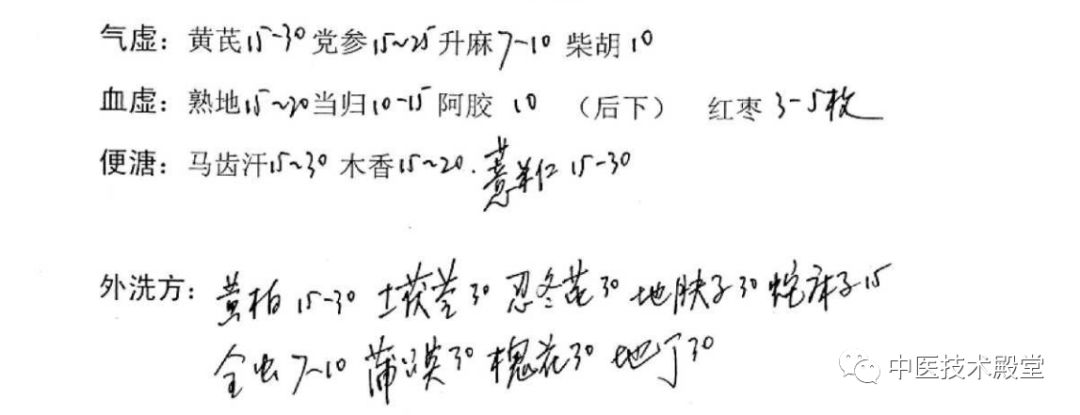 气虚：黄芪15-30党参15~25升麻7-10 柴胡10
血虚：熟地15~20当归10-15阿胶 10 （后下） 红枣3-5枚
便溏：马齿汗15~30 木香15~20.薏苡仁15-30
外洗方：黄柏15-30 土茯苓30 忍冬花30 地肤子30蛇床子15
全虫7~10 蒲公英30 槐花30 地丁30
中医技术殿堂